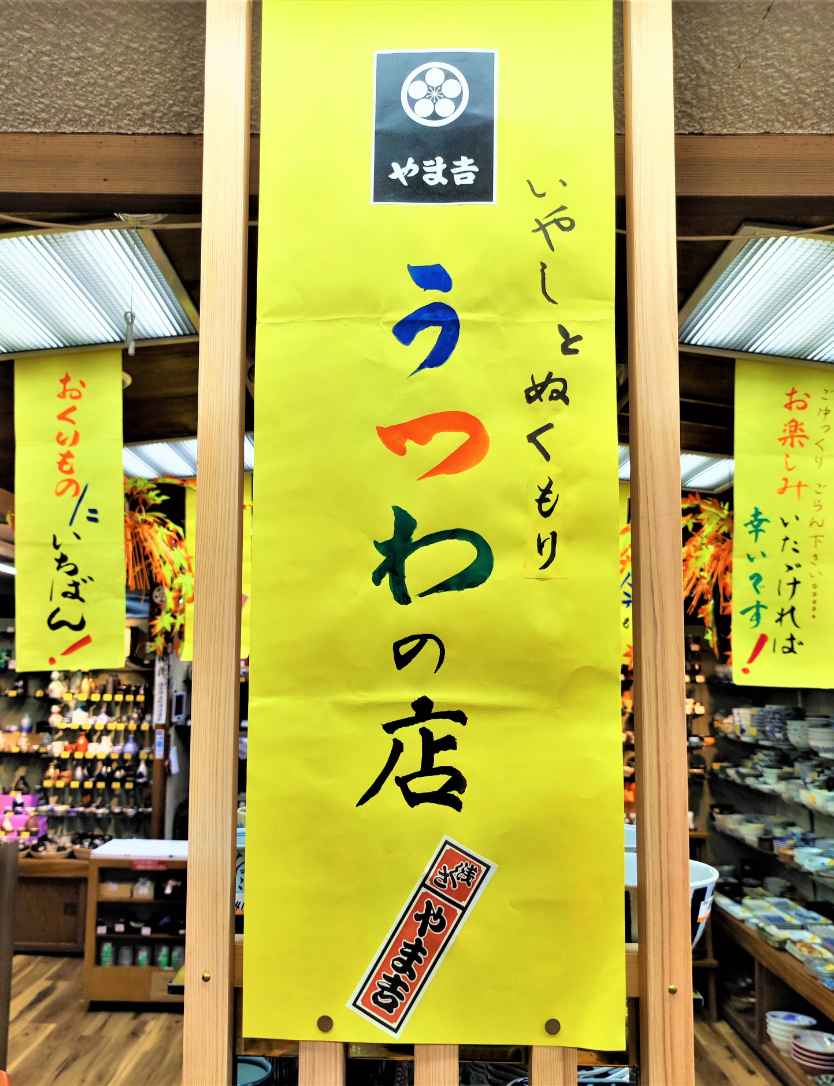 やま吉
いやしとぬくもり
うつわの店
浅さく
やま吉
おくりものに
いちばん!
ごゆっくりごらん下さい
お楽しみいただければ
幸いです!